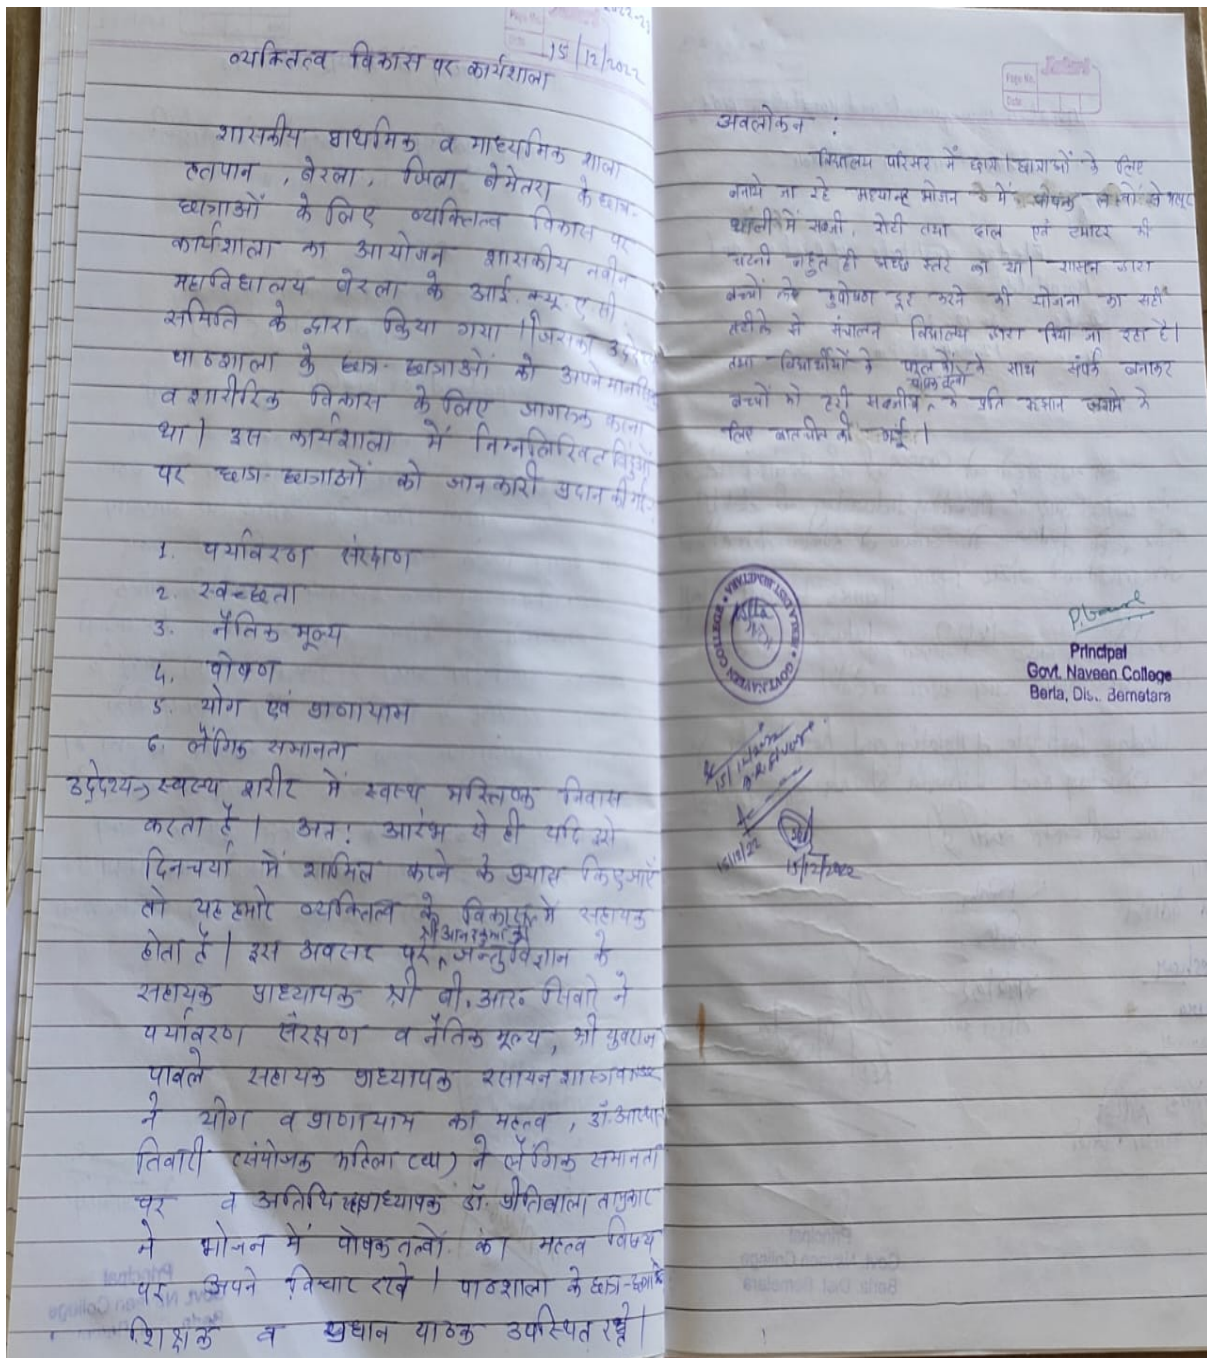 2022-23
15/12/2022
व्यक्तित्व विकास पर कार्यशाला
शासकीय प्राथमिक व माध्यमिक शाला
हतपान, बेरला, जिला बेमेतरा के छात्र-
छात्राओं के लिए व्यक्तित्व विकास पर
कार्यशाला का आयोजन शासकीय नवीन
महाविद्यालय बेरला के आई.क्यू.ए.सी
समिति के द्वारा किया गया। जिसका उद्देश्य
पाठशाला के छात्र-छात्राओं को अपने मानसिक
व शारीरिक विकास के लिए जागरूक करना
था। इस कार्यशाला में निम्नलिखित बिंदुओं
पर छात्र-छात्राओं को जानकारी प्रदान की गई-
1. पर्यावरण संरक्षण
2. स्वच्छता
3. नैतिक मूल्य
4. पोषण
5. योग एवं प्राणायाम
6. लैंगिक समानता
उद्देश्य→ स्वस्थ शरीर में स्वस्थ मस्तिष्क निवास
करता है। अतः आरंभ से ही यदि इसे
दिनचर्या में शामिल करने के प्रयास किए जाएँ
तो यह हमारे व्यक्तित्व के विकास में सहायक
होता है। इस अवसर पर जन्तुविज्ञान के
सहायक प्राध्यापक श्री बी.आर. सिवारे ने
पर्यावरण संरक्षण व नैतिक मूल्य, श्री युवराज
पावले सहायक प्राध्यापक रसायन शास्त्र
ने योग व प्राणायाम का महत्व, डॉ. आस्था
तिवारी (संयोजक महिला सेल) ने लैंगिक समानता
पर व अतिथि प्राध्यापक डॉ. प्रीतिबाला ताम्रकार
ने भोजन में पोषक तत्वों का महत्व विषय
पर अपने विचार रखे। पाठशाला के छात्र-छात्राएँ
शिक्षक व प्रधान पाठक उपस्थित रहे।
Page No.
Date
अवलोकन :
विद्यालय परिसर में छात्र/छात्राओं के लिए
बनाये जा रहे मध्यान्ह भोजन में पोषक तत्वों से भरपूर
थाली में सब्जी, रोटी तथा दाल एवं टमाटर की
चटनी बहुत ही अच्छे स्तर का था। शासन द्वारा
बच्चों के कुपोषण दूर करने की योजना का सही
तरीके से संचालन विद्यालय द्वारा किया जा रहा है।
तथा विद्यार्थीयों के पालकों के साथ संपर्क बनाकर
बच्चों को हरी सब्जीयों के प्रति रुझान जगाने के
लिए बातचीत की गई।
GOVT. NAVEEN COLLEGE BERLA DIST BEMETARA
Principal
Govt. Naveen College
Berla, Dis.. Bemetara
15/12/2022
15/12/22
15/12/2022